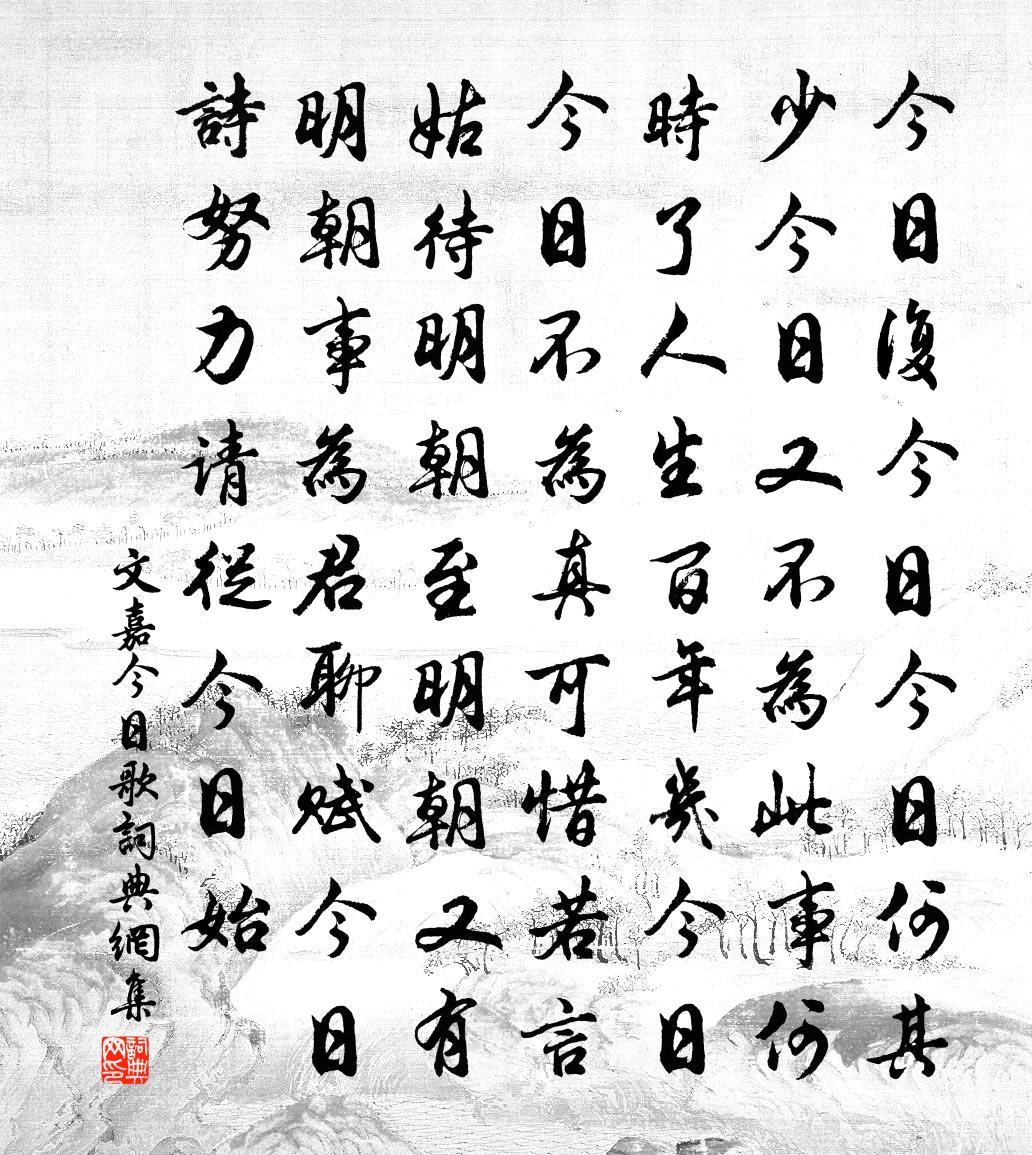 今日復今日今日何其
少今日又不為此事何
時了人生百年幾今日
今日不為真可惜若言
姑待明朝至明朝又有
明朝事為君聊賦今日
詩努力请從今日始
文嘉今日歌詞典網集
詞典网印